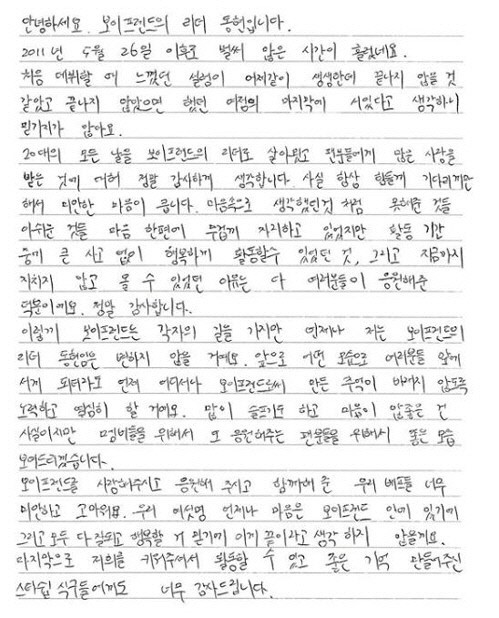 안녕하세요. 보이프렌드의 리더 동현입니다.
2011년 5월 26일 이후로 벌써 많은 시간이 흘렀네요.
처음 데뷔할 때 느꼈던 설렘이 어제같이 생생한데 끝나지 않을 것
같았고 끝나지 않았으면 했던 여정의 마지막에 서있다고 생각하니
믿기지가 않아요.
20대의 모든 날을 보이프렌드의 리더로 살아왔고 팬분들에게 많은 사랑을
받은 것에 대해 정말 감사하게 생각합니다. 사실 항상 팬들께 기다리게만
해서 미안한 마음이 큽니다. 마음속으로 생각했던것 처럼 못해준 것들
아쉬운 것들 마음 한편에 무겁게 자리하고 있었지만 활동 기간
중에 큰 사고 없이 행복하게 활동할수 있었던 것, 그리고 지금까지
지치지 않고 올 수 있었던 이유는 다 여러분들이 응원해준
덕분이에요. 정말 감사합니다.
이렇게 보이프렌드는 각자의 길을 가지만 언제나 저는 보이프렌드의
리더 동현임은 변하지 않을 거예요. 앞으로 어떤 모습으로 여러분들 앞에
서게 되더라도 언제 어디서나 보이프렌드로써 만든 추억이 바래지 않도록
노력하고 열심히 할 거에요. 많이 슬프기도 하고 마음이 안좋은 건
사실이지만 멤버들을 위해서 또 응원해주는 팬분들을 위해서 좋은 모습
보여드리겠습니다.
보이프렌드를 사랑해주시고 응원해 주시고 함께해 준 우리 베프들 너무
미안하고 고마워요. 우리 여섯명 언제나 마음은 보이프렌드 안에 있기에
그리고 모두 다 잘되고 행복할 거 믿기에 이게 끝이라고 생각 하지 않을게요.
마지막으로 저희를 키워주셔서 활동할 수 있고 좋은 기억 만들어주신
스타쉽 식구들에게도 너무 감사드립니다.